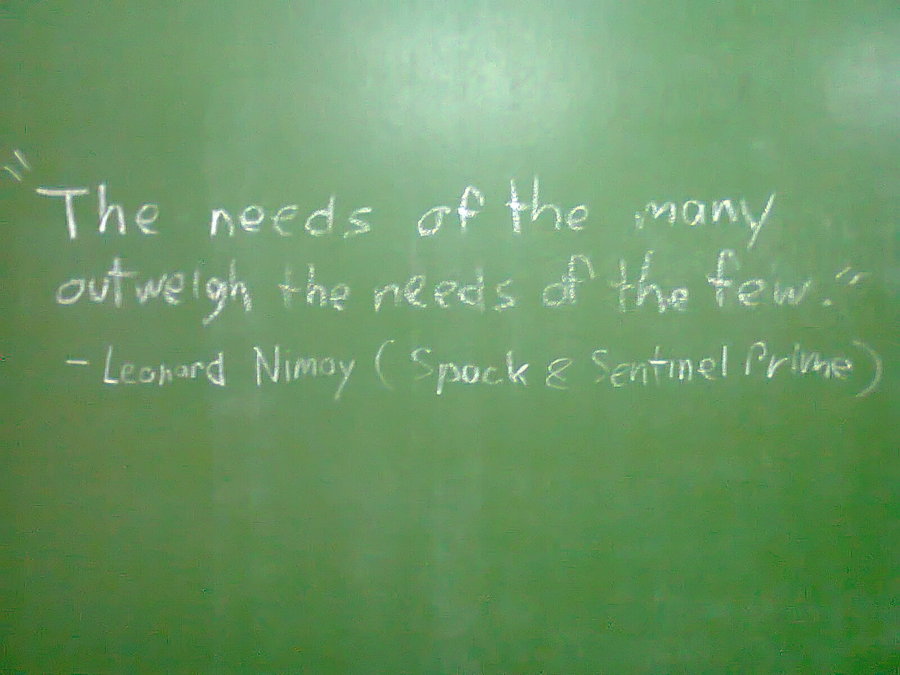 "The needs of the many
outweigh the needs of the few."
- Leonard Nimoy (Spock & Sentinel Prime)